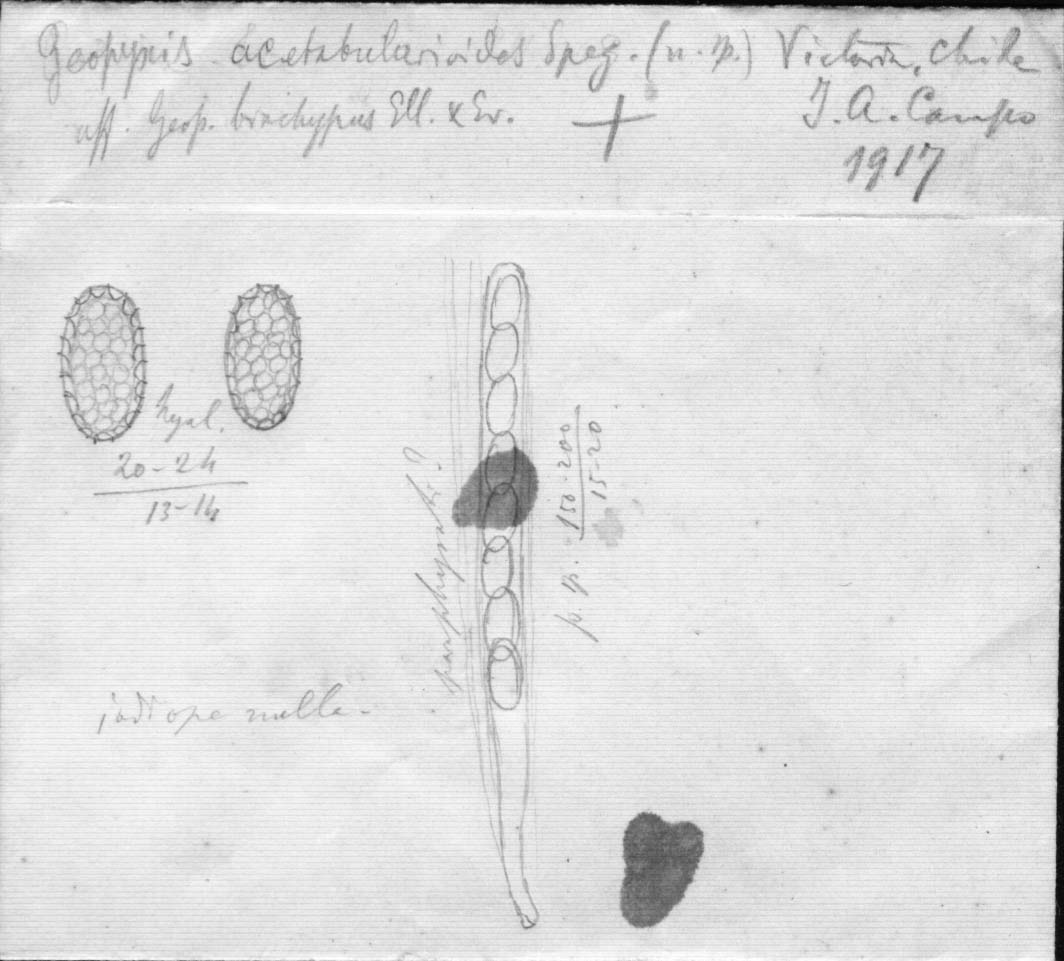 Geopyxis acetabularioides Speg. (n. sp.) Victoria, Chile
aff. Geop. brachypus Ell. & Ev. + J. A. Campo
1917
hyal.
20-24
13-14
paraphysati?
p. sp. 150-200
15-20
jodi ope nulla-